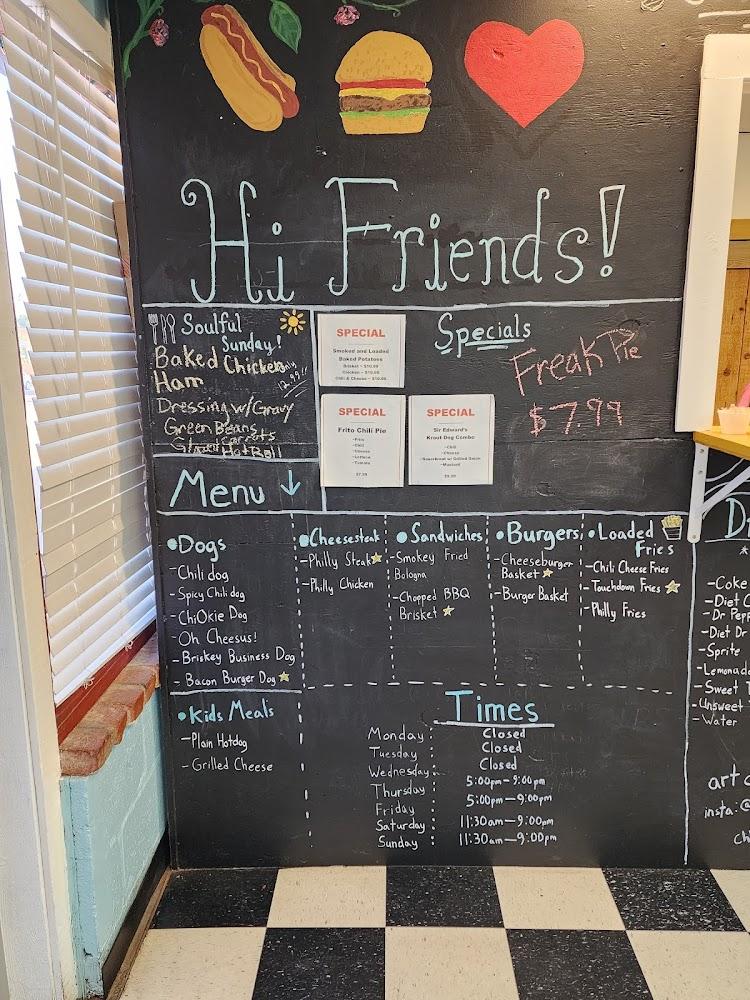 Hi Friends!
Soulful
Sunday!
Baked Chicken
Ham
only
12.99!!
Dressing w/ Gravy
Green Beans
Glazed Carrots
Hot Roll
SPECIAL
Smoked and Loaded
Baked Potatoes
Brisket ~ $10.99
Chicken ~ $10.99
Chili & Cheese ~ $10.99
SPECIAL
Frito Chili Pie
~Frito
~Chili
~Cheese
~Lettuce
~Tomato
$7.99
SPECIAL
Sir Edward's
Kraut Dog Combo
~Chili
~Cheese
~Sauerkraut w/ Grilled Onion
~Mustard
$9.99
Specials
Freak Pie
$7.99
Menu ↓
•Dogs
-Chili dog
-Spicy Chili dog
-ChiOkie Dog
-Oh Cheesus!
-Briskey Business Dog
-Bacon Burger Dog
•Kids Meals
-Plain Hotdog
-Grilled Cheese
•Cheesesteak
-Philly Steak
-Philly Chicken
•Sandwiches
-Smokey Fried
Bologna
-Chopped BBQ
Brisket
•Burgers
-Cheeseburger
Basket
-Burger Basket
•Loaded
Fries
-Chili Cheese Fries
-Touchdown Fries
-Philly Fries
Times
Monday Closed
Tuesday Closed
Wednesday Closed
Thursday 5:00pm-9:00pm
Friday 5:00pm-9:00pm
Saturday 11:30am-9:00pm
Sunday 11:30am-9:00pm
-Coke
-Diet C
-Dr Pepp
-Diet Dr
-Sprite
-Lemonade
-Sweet T
-Unsweet T
-Water
art
insta:@